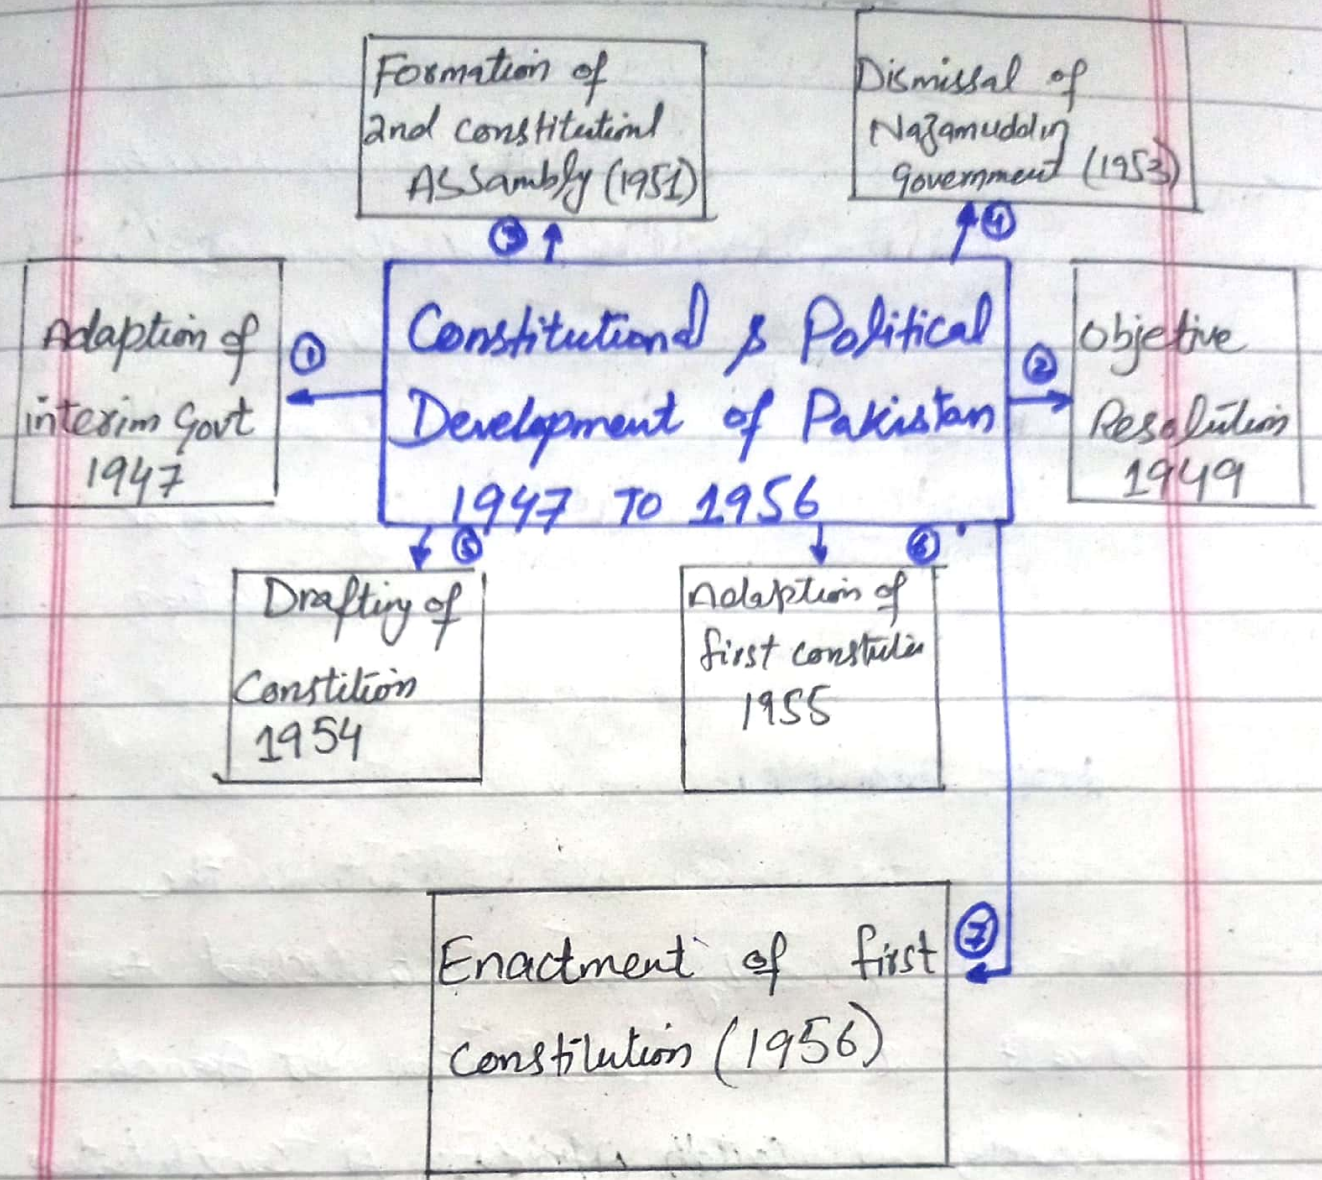 Formation of
2nd constitutionl
Assambly (1951)
Dismissal of
Nazamuddin
Government (1953)
3
4
Adaption of
interim Govt
1947
1
Constitutional & Political
Development of Pakistan
1947 TO 1956
2
Objetive
Resolution
1949
5
6
Drafting of
Constition
1954
Adaption of
first
1955
7
Enactment of first
Constitution (1956)